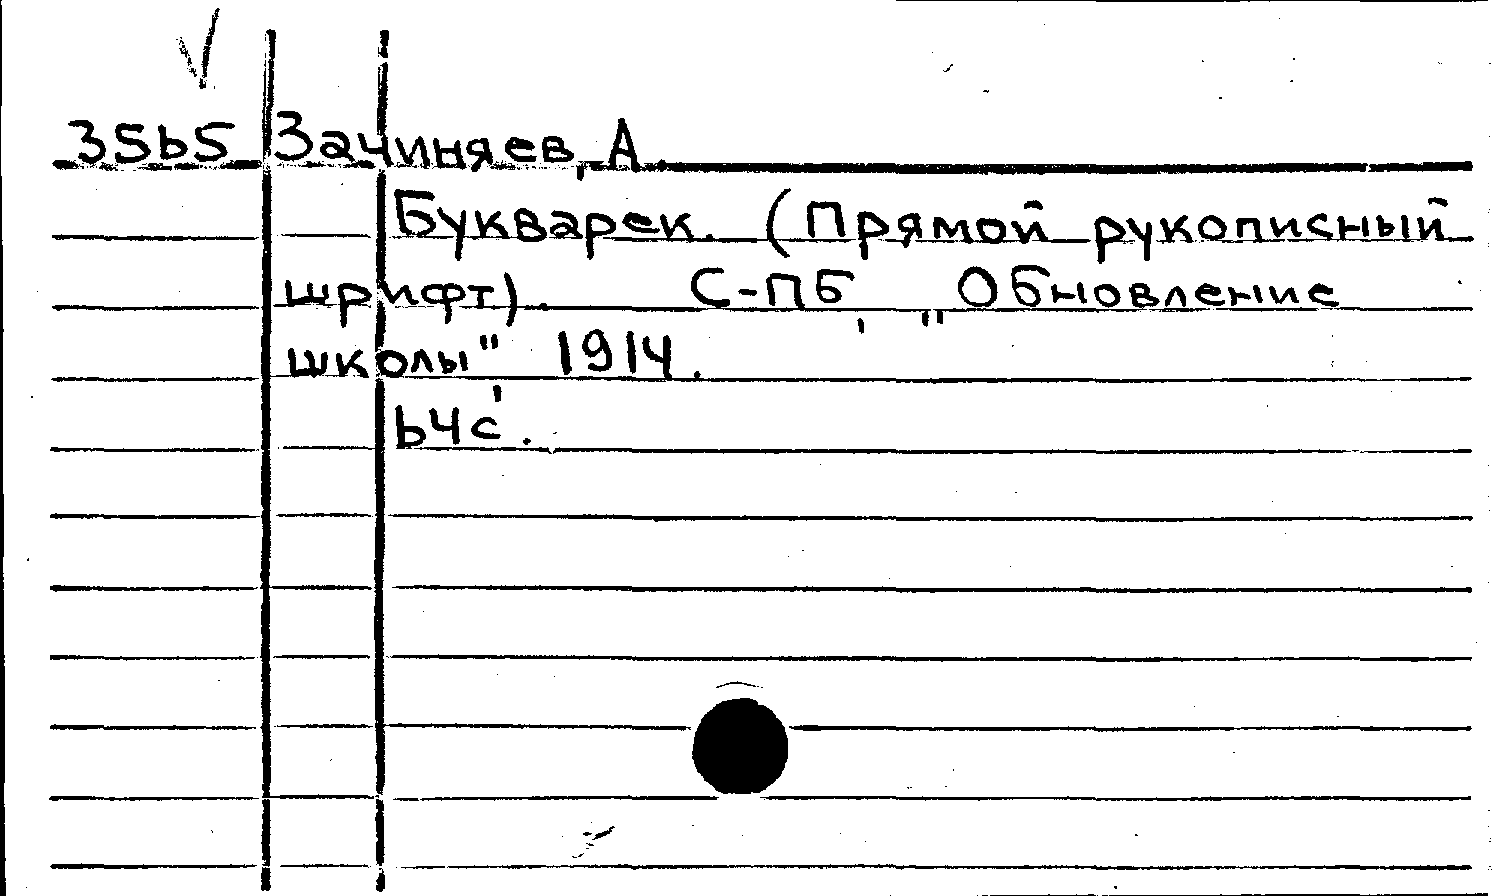 3565 Зачиняев, А.
Букварек. (Прямой рукописный
шрифт). С-ПБ, "Обновление
школы" 1914.
64с.